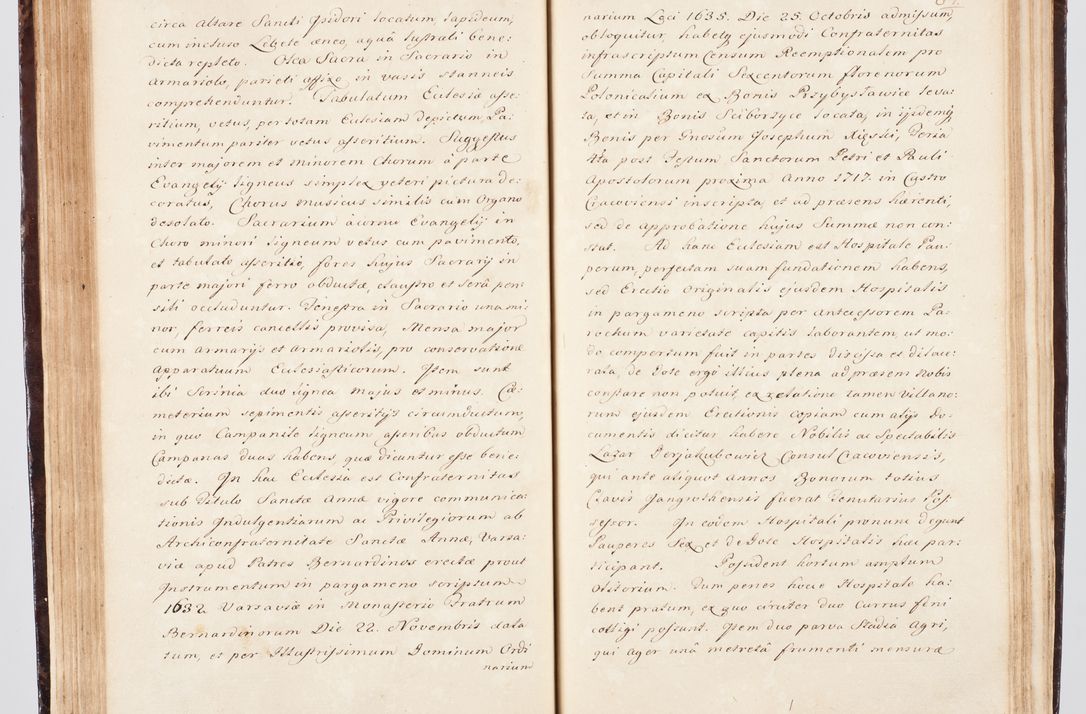 circa Altare Sancti Isidori locatum, lapideum,
cum incluso Lebete æneo, aquâ lustrali bene:
dicta repleto. Olea Sacra in Sacrario in
armariolo, parieti affixo in vasis stanneis
comprehenduntur. Tabulatum Eclesiæ asse:
ritium, vetus, per totam Eclesiam depictum, Pa:
vimentum pariter vetus asseritium. Suggestus
inter majorem et minorem Chorum à parte
Evangelij ligneus simplex veteri pictura de:
coratus, Chorus musicus similis cum Organo
desolato. Sacrarium à cornu Evangelij in
Choro minori ligneum vetus cum pavimento,
et tabulato asseritio, fores hujus Sacrarij in
parte majori ferro obductæ, claustro et serâ pen:
sili occluduntur. Fenestra in Sacrario una mi:
nor, ferreis cancellis provisa, Mensa major
cum armarijs et armariolis, pro conservatione
Apparatuum Eclesiasticorum. Item sunt
ibi Scrinia duo lignea majus et minus. Cæ:
meterium sepimentis asseritijs circumductum,
in quo Campanile ligneum asseribus obductum
Campanas duas habens, quæ dicuntur esse bene:
dictæ. In hac Eclesia est Confraternitas
sub Titulo Sanctæ Annæ vigore communica:
tionis Indulgentiarum ac Privilegiorum ab
Archiconfraternitate Sanctæ Annæ, Varsa:
viæ apud Patres Bernardinos erectæ prout
Instrumentum in pargameno scriptum
1632 Varsaviæ in Monasterio Fratrum
Bernardinorum Die 22. Novembris data
tum, et per Illustrissimum Dominum Ordi
narium
narium Loci 1635. Die 25. Octobris admissum,
obloquitur, habetq ejusmodi Confraternitas
infrascriptum Censum Reemptionalem pro
Summa Capitali Sexcentorum florenorum
Polonicalium ex Bonis Przybysławice leva:
ta, et in Bonis Sciborzyce locata, in ijsdemq
Bonis per Gnosum Josephum Kięski, Feria
4ta post Festum Sanctorum Petri et Pauli
Apostolorum proxima Anno 1717. in Castro
Cracoviensi inscripta, et ad præsens hærenti,
sed de approbatione hujus Summæ non con:
stat. Ad hanc Eclesiam est Hospitale Pau:
perum, perfectam suam fundationem habens,
sed Erectio Originalis ejusdem Hospitalis
in pargameno scripta per Antecessorem Pa:
rochum varietate capitis laborantem, ut mo:
do compertum fuit in partes discissa et dilace:
rata, de Dote ergo illius plena ad præsens Nobis
constare non potuit, ex relatione tamen Villano:
rum ejusdem Erectionis copiam cum alijs Do:
cumentis dicitur habere Nobilis ac Spectabilis
Lazar Derjakubowicz Consul Cracoviensis,
qui ante aliquot annos Bonorum totius
Clavis Jangrothensis fuerat Tenutarius Pos:
sessor. In eodem Hospitali pronunc degunt
Pauperes Sex et de Dote Hospitalis hac par:
ticipant. Possident hortum amplum
Olitorium. Tum penes hocce Hospitale ha:
bent pratum, ex quo circiter duo Currus fæni
colligi possunt. Item duo parva Stadia Agri,
qui ager unâ metretâ frumenti mensuræ